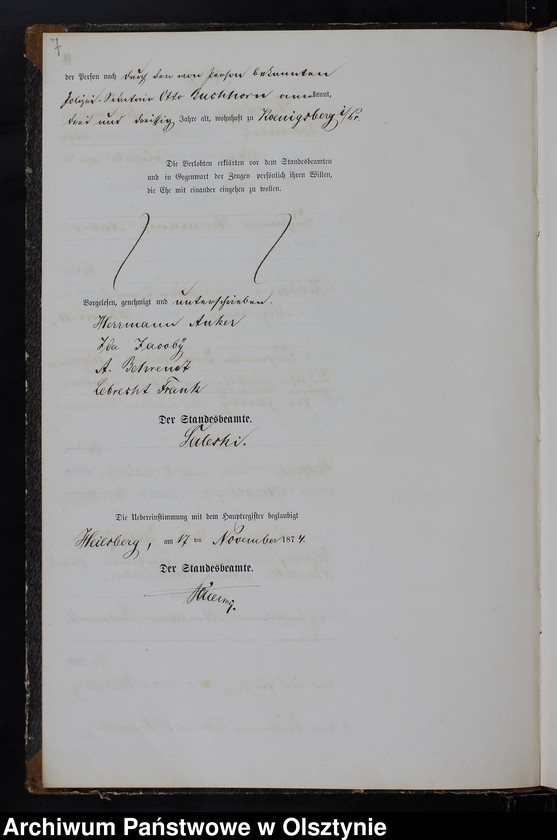 7
der Person nach durch den von Person bekannten
Polizei-Sekretair Otto Buchhorn anerkannt,
drei und dreißig Jahre alt, wohnhaft zu Koenigsberg i/Pr.
Die Verlobten erklärten vor dem Standesbeamten
und in Gegenwart der Zeugen persönlich ihren Willen,
die Ehe mit einander eingehen zu wollen.
Vorgelesen, genehmigt und unterschrieben.
Herrmann Anker
Ida Jacoby
A. Behrendt
Lebrecht Frank
Der Standesbeamte.
Saleski.
Die Uebereinstimmung mit dem Hauptregister beglaubigt
Heilsberg, am 17 ten November 1874.
Der Standesbeamte.
Archiwum Państwowe w Olsztynie